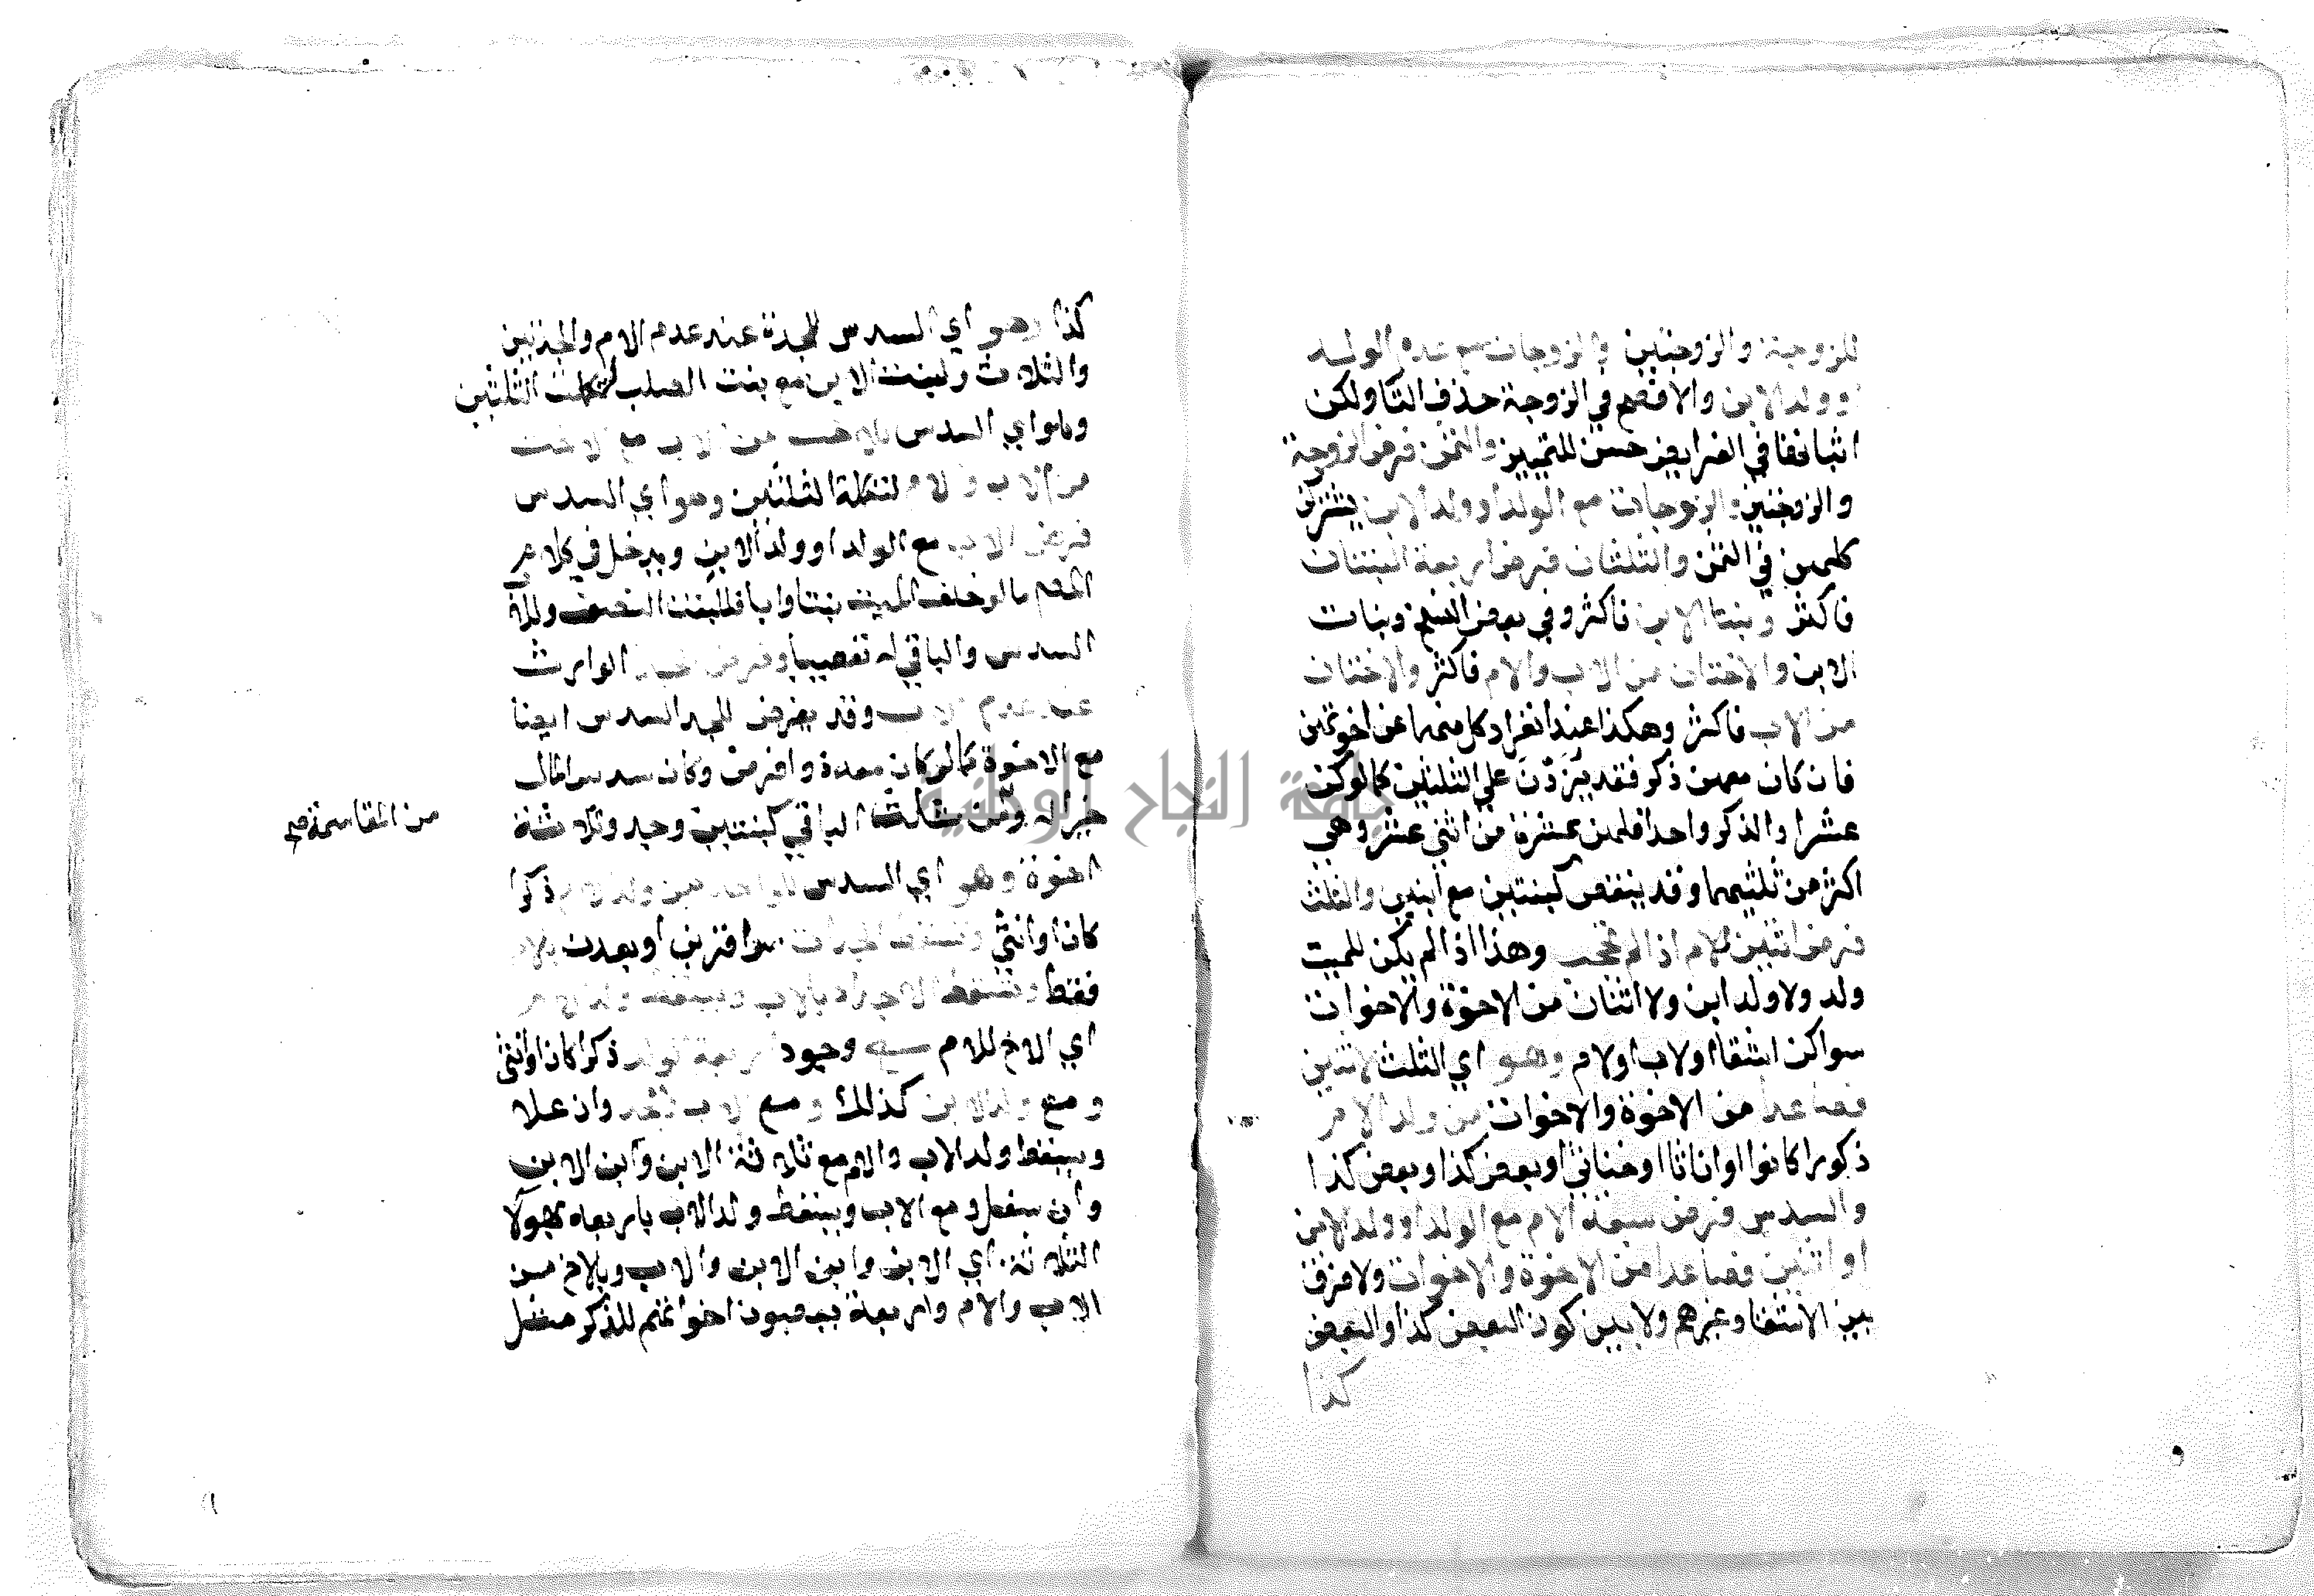 للزوجة والزوجتين والزوجات مع عدم الولد
او ولد الابن والافصح في الزوجة حذف التا ولكن
اثباتها في الفرايض حسن للتمييز والثمن فرض الزوجة
والزوجتين والزوجات مع الولد او ولد الابن يشتركن
كلهن في الثمن والثلثان فرض اربعة البنتان
فاكثر وبنتا الابن فاكثر وفي بعض النسخ وبنات
الابن والاختان من الاب والام فاكثر والاختان
من الاب فاكثر وهكذا عند انفراد كل منهما عن اخوتهن
فان كان معهن ذكر فقد يزدن على الثلثين كما لو كن
عشرا والذكر واحدا فلهن عشرة من اثني عشر وهي
اكثر من ثلثيهما وقد ينقص كبنتين مع ابنين والثلث
فرض اثنين للام اذا لم تحجب وهذا اذا لم يكن للميت
ولد ولا ولد ابن ولا اثنان من الاخوة والاخوات
سوا كن اشقا او لاب او لام وهو اي الثلث لاثنين
فصاعدا من الاخوة والاخوات من ولد الام
ذكورا كانوا او اناثا او خناثي او بعض كذا وبعض كذا
والسدس فرض سبعة الام مع الولد او ولد الابن
او اثنين فصاعدا من الاخوة والاخوات ولا فرق
بين الاشقا وغيرهم ولا بين كون البعض كذا والبعض
كذا
كذا وهو اي السدس للجدة عند عدم الام والجدتين
والثلاث ولبنت الابن مع بنت الصلب لتكملت الثلثين
وهو اي السدس للاخت من الاب مع الاخت
من الاب والام لتكملة الثلثين وهو اي السدس
فرض الاب مع الولد او ولد الابن ويدخل في كلام
المصنف ما لو خلف الميت بنتا وابا فللبنت النصف وللاب
السدس والباقي له تعصيبا وفرض الجد الوارث
عند عدم الاب وقد يفرض للجد السدس ايضا
مع الاخوة كما لو كان معه ذو فرض وكان سدس المال
خير له ومن ثلث الباقي كبنتين وجد وثلاثة
من المقاسمة صح
اخوة وهو اي السدس للواحد من ولد الام ذكرا
كان او انثى وتسقط الجدات سوا قربن او بعدن بالام
فقط وتسقط الاجداد بالاب ويسقط ولد الام
اي الاخ للام مع وجود اربعة الولد ذكرا كان او انثى
ومع ولد الابن كذلك ومع الاب والجد وان علا
ويسقط ولد الاب والام مع ثلاثة الابن وابن الابن
وان سفل ومع الاب ويسقط ولد الاب باربعة بهولا
الثلاثة اي الابن وابن الابن والاب وبالاخ من
الاب والام واربعة يعصبون اخواتهم للذكر مثل